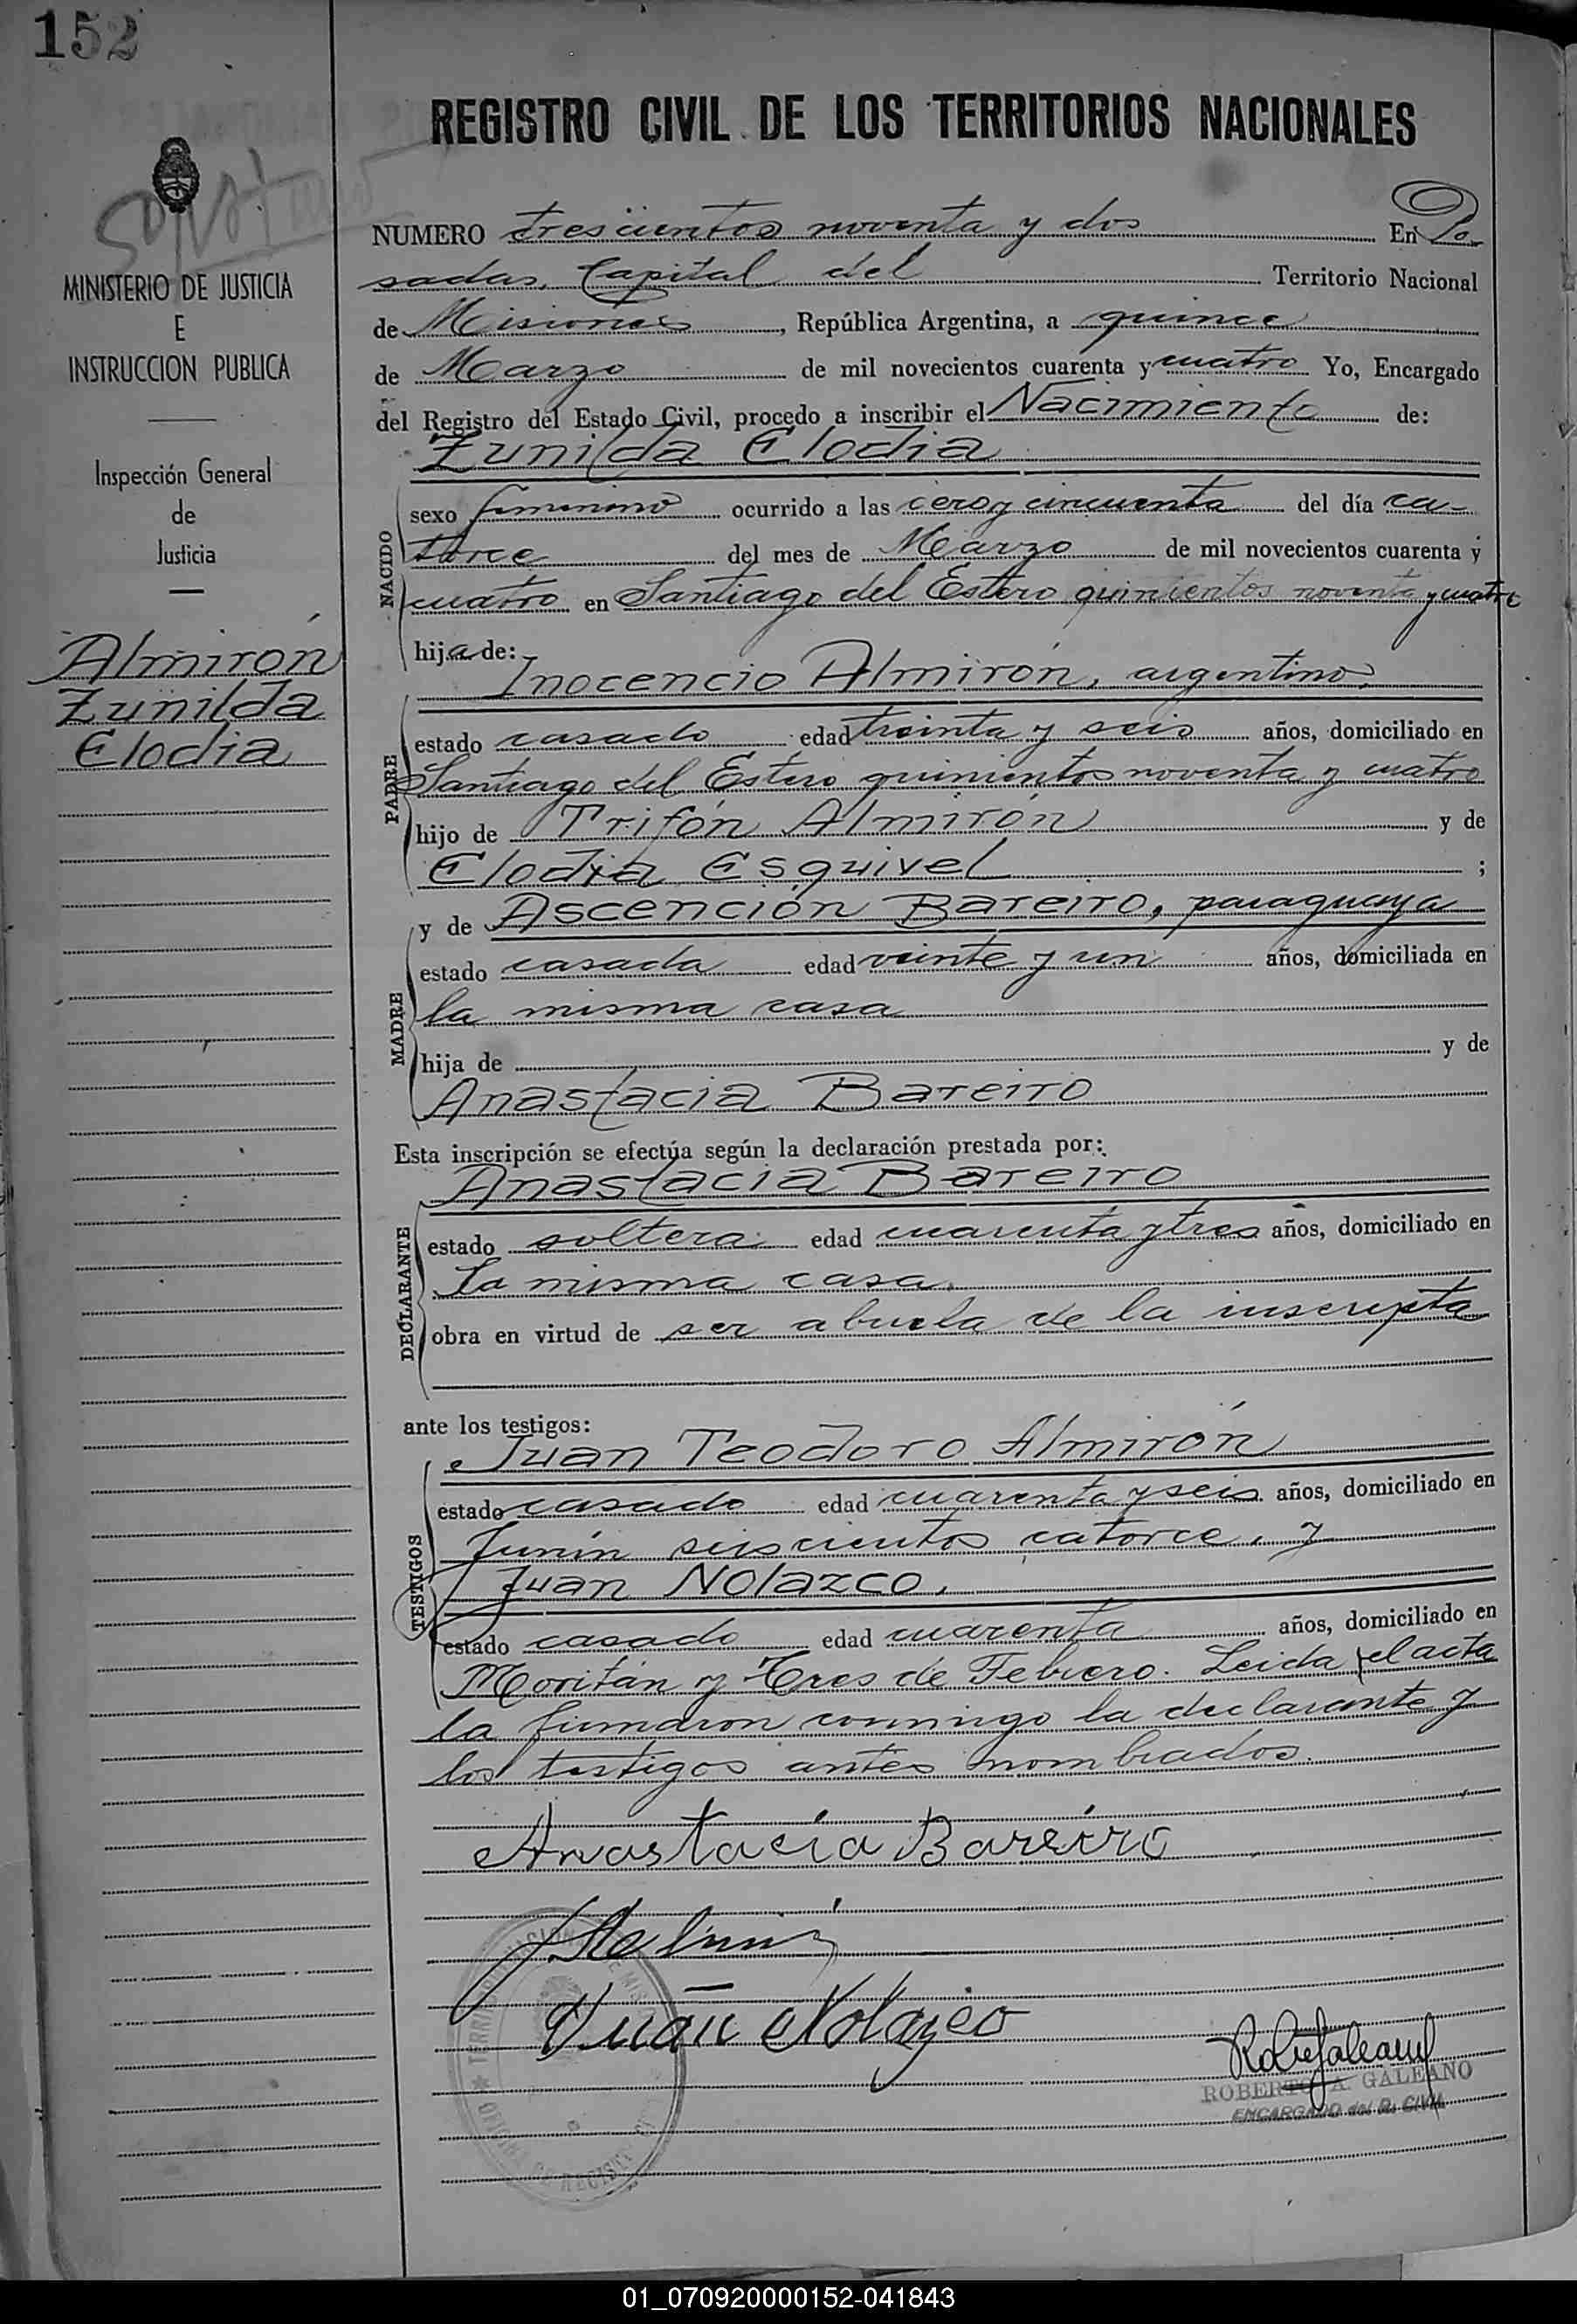 152
REGISTRO CIVIL DE LOS TERRITORIOS NACIONALES
MINISTERIO DE JUSTICIA
E
INSTRUCCION PUBLICA
Inspección General
de
Justicia
Almirón
Zunilda
Elodia
NUMERO trescientos noventa y dos En Po-
sadas, Capital del Territorio Nacional
de Misiones, República Argentina, a quince
de Marzo de mil novecientos cuarenta y cuatro Yo, Encargado
del Registro del Estado Civil, procedo a inscribir el Nacimiento de:
Zunilda Elodia
NACIDO
sexo femenino ocurrido a las cero y cincuenta del día ca-
torce del mes de Marzo de mil novecientos cuarenta y
cuatro en Santiago del Estero quinientos noventa y cuatro
hija de:
Inocencio Almirón, argentino,
PADRE
estado casado edad treinta y seis años, domiciliado en
Santiago del Estero quinientos noventa y cuatro
hijo de Trifón Almirón y de
Elodia Esquivel ;
y de Ascención Bareiro, paraguaya
MADRE
estado casada edad veinte y un años, domiciliada en
la misma casa
hija de y de
Anastacia Bareiro
Esta inscripción se efectúa según la declaración prestada por:
Anastacia Bareiro
DECLARANTE
estado soltera edad cuarenta y tres años, domiciliado en
la misma casa.
obra en virtud de ser abuela de la inscripta
ante los testigos:
Juan Teodoro Almirón
TESTIGOS
estado casado edad cuarenta y seis años, domiciliado en
Junín seiscientos catorce, y
Juan Nolazco,
estado casado edad cuarenta años, domiciliado en
Moritán y Tres de Febrero. Leida el acta
la firmaron conmigo la declarante y
los testigos antes nombrados.
Anastacia Bareiro
Juan Nolazco
ROBERTO A. GALEANO
ENCARGADO del R. CIVIL
01_070920000152-041843